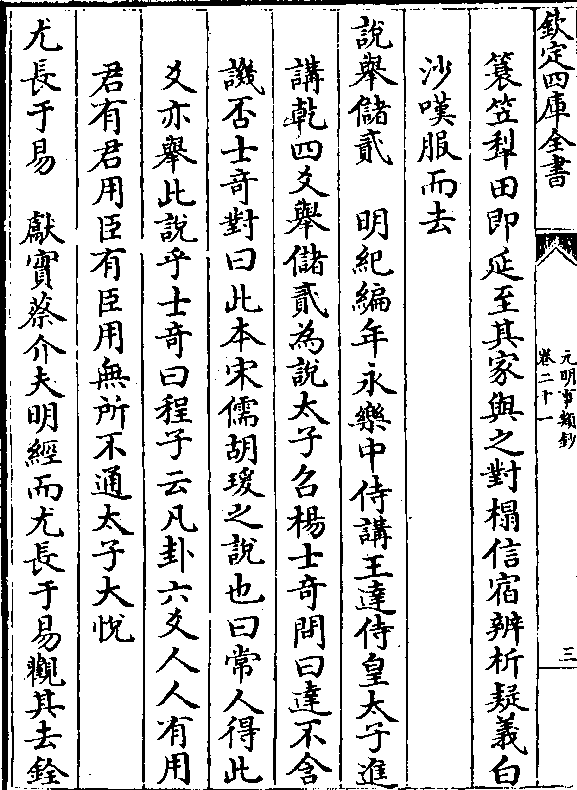 欽定四庫全書
元明事類鈔
卷二十一
三
簑笠犁田即延至其家與之對榻信宿辨析疑義白
沙嘆服而去
說舉儲貳　明紀編年永樂中侍講王達侍皇太子進
講乾四爻舉儲貳為說太子召楊士奇問曰達不含
譏否士奇對曰此本宋儒胡瑗之說也曰常人得此
爻亦舉此說乎士奇曰程子云凡卦六爻人人有用
君有君用臣有臣用無所不通太子大悅
尤長于易　獻實蔡介夫明經而尤長于易觀其去銓